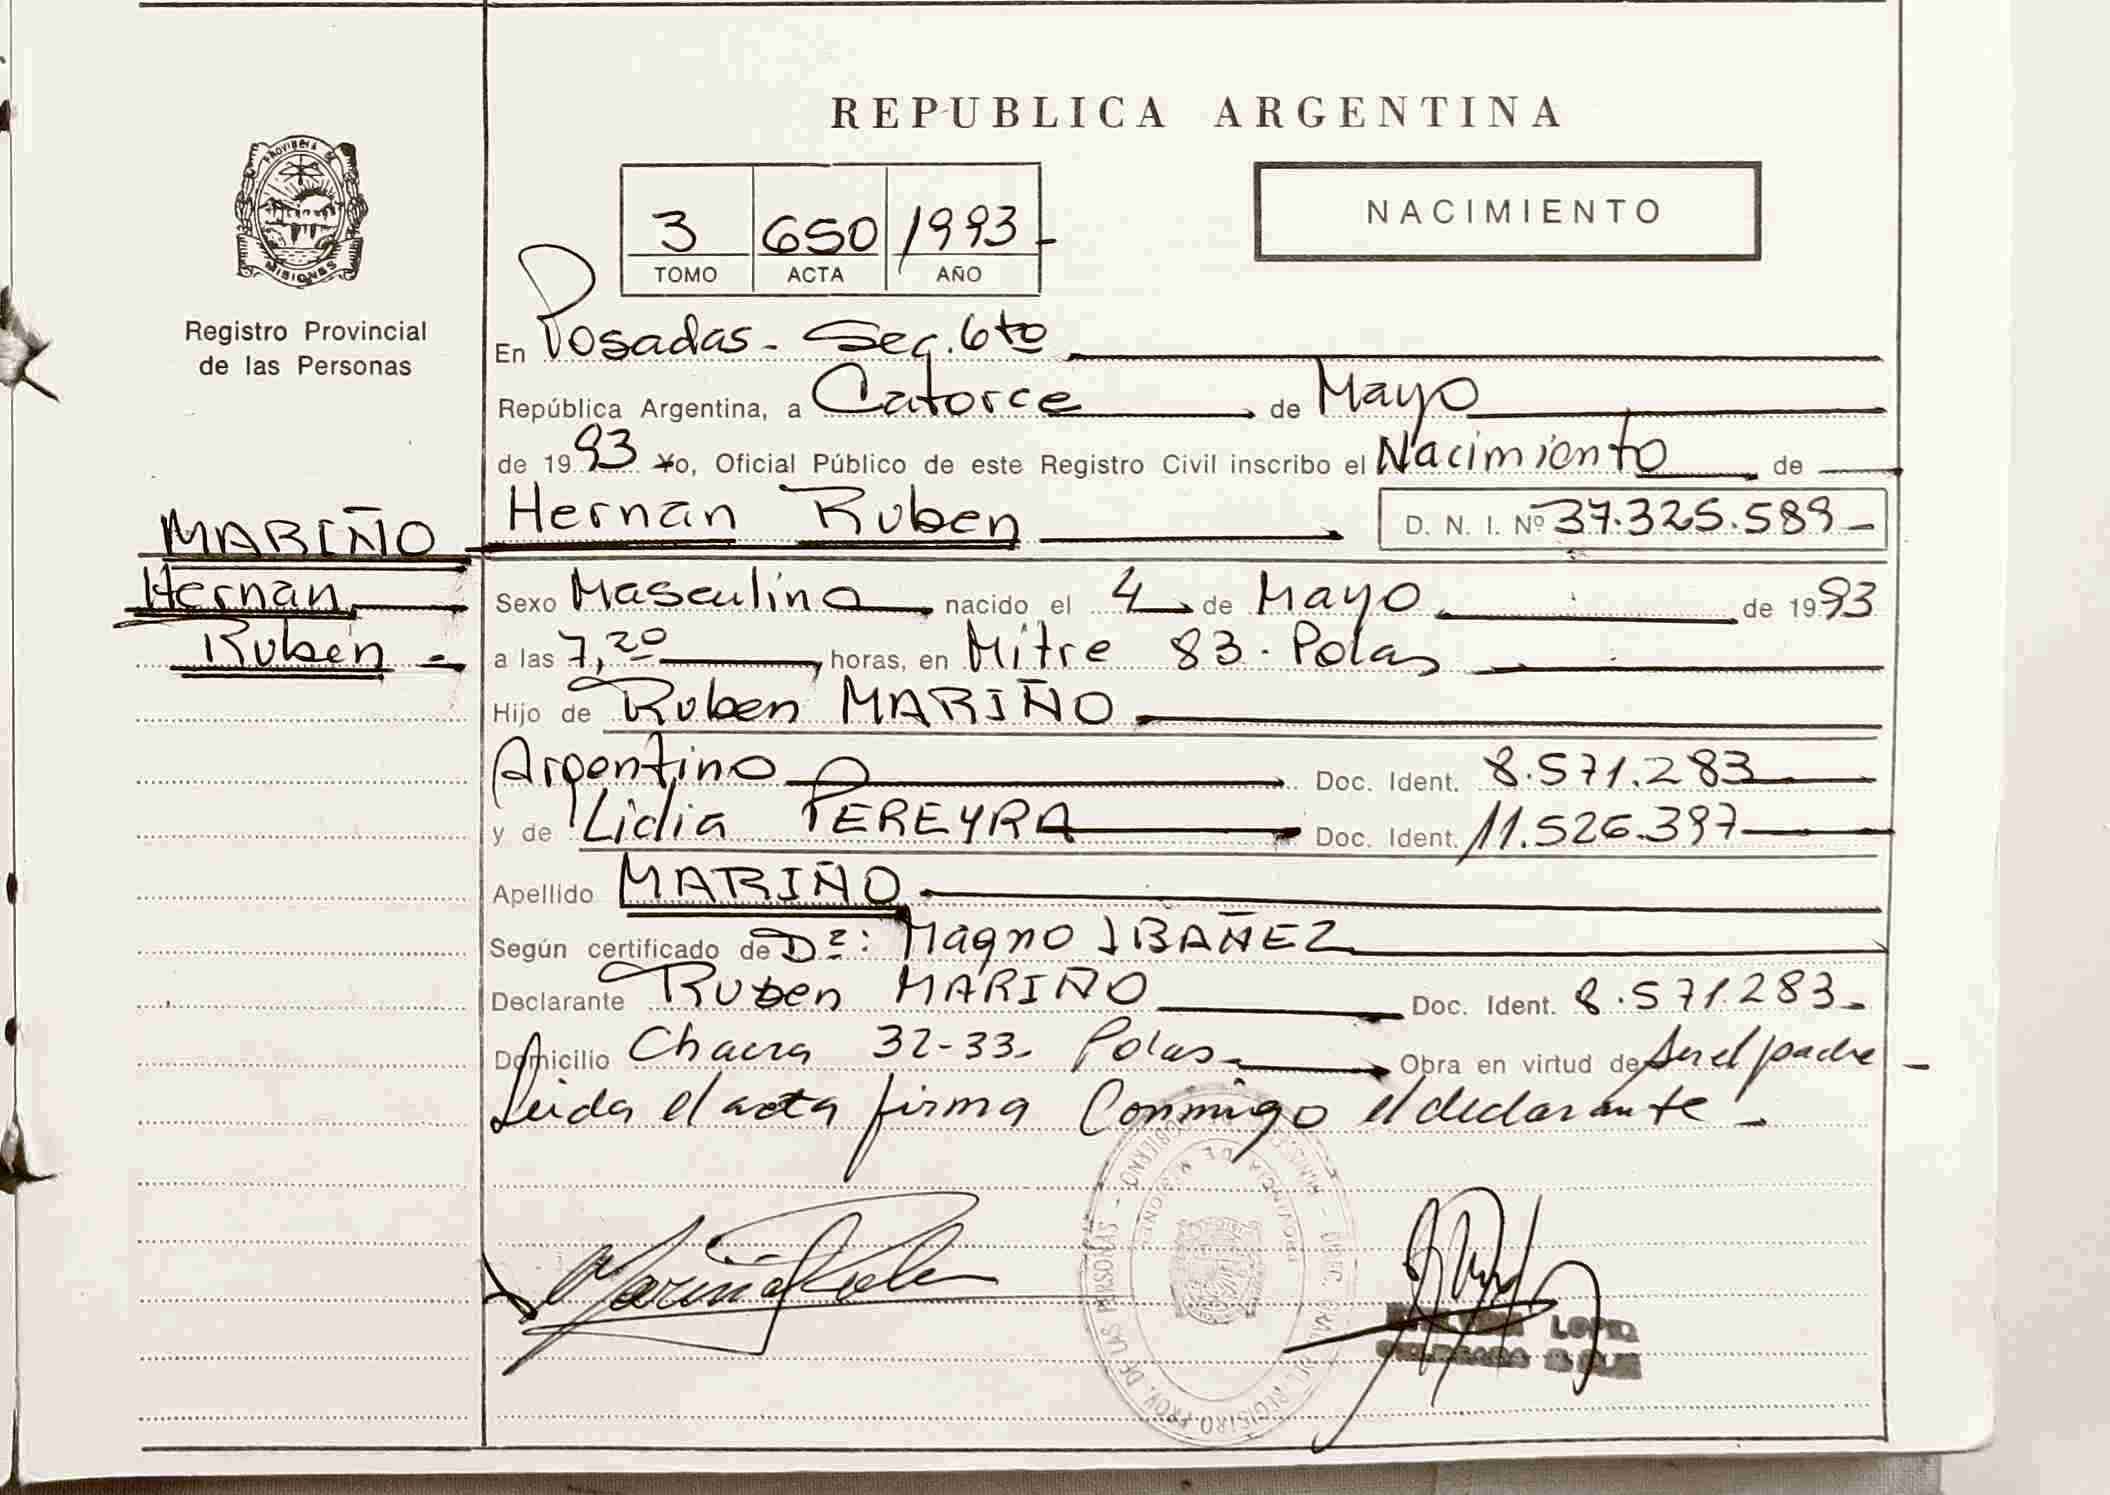 REPUBLICA ARGENTINA
PROVINCIA DE
MISIONES
Registro Provincial
de las Personas
3 650 1993-
TOMO ACTA AÑO
NACIMIENTO
En Posadas - Sec. 6to
República Argentina, a Catorce de Mayo
de 1993 Yo, Oficial Público de este Registro Civil inscribo el Nacimiento de
MARIÑO
Hernan
Ruben -
Hernan Ruben D. N. I. Nº 37.325.589-
Sexo Masculino nacido el 4 de Mayo de 1993
a las 7,20 horas, en Mitre 83. Pdas
Hijo de Ruben MARIÑO
Argentino Doc. Ident. 8.571.283
y de Lidia PEREYRA Doc. Ident. 11.526.397
Apellido MARIÑO
Según certificado de Dr: Magno IBAÑEZ
Declarante Ruben MARIÑO Doc. Ident. 8.571.283-
Domicilio Chacra 32-33- Pdas- Obra en virtud de ser el padre -
Leida el acta firma Conmigo el declarante -
PROVINCIA DE MISIONES
REGISTRO PROV. DE LAS PERSONAS -
Mariño Ruben
LOPEZ